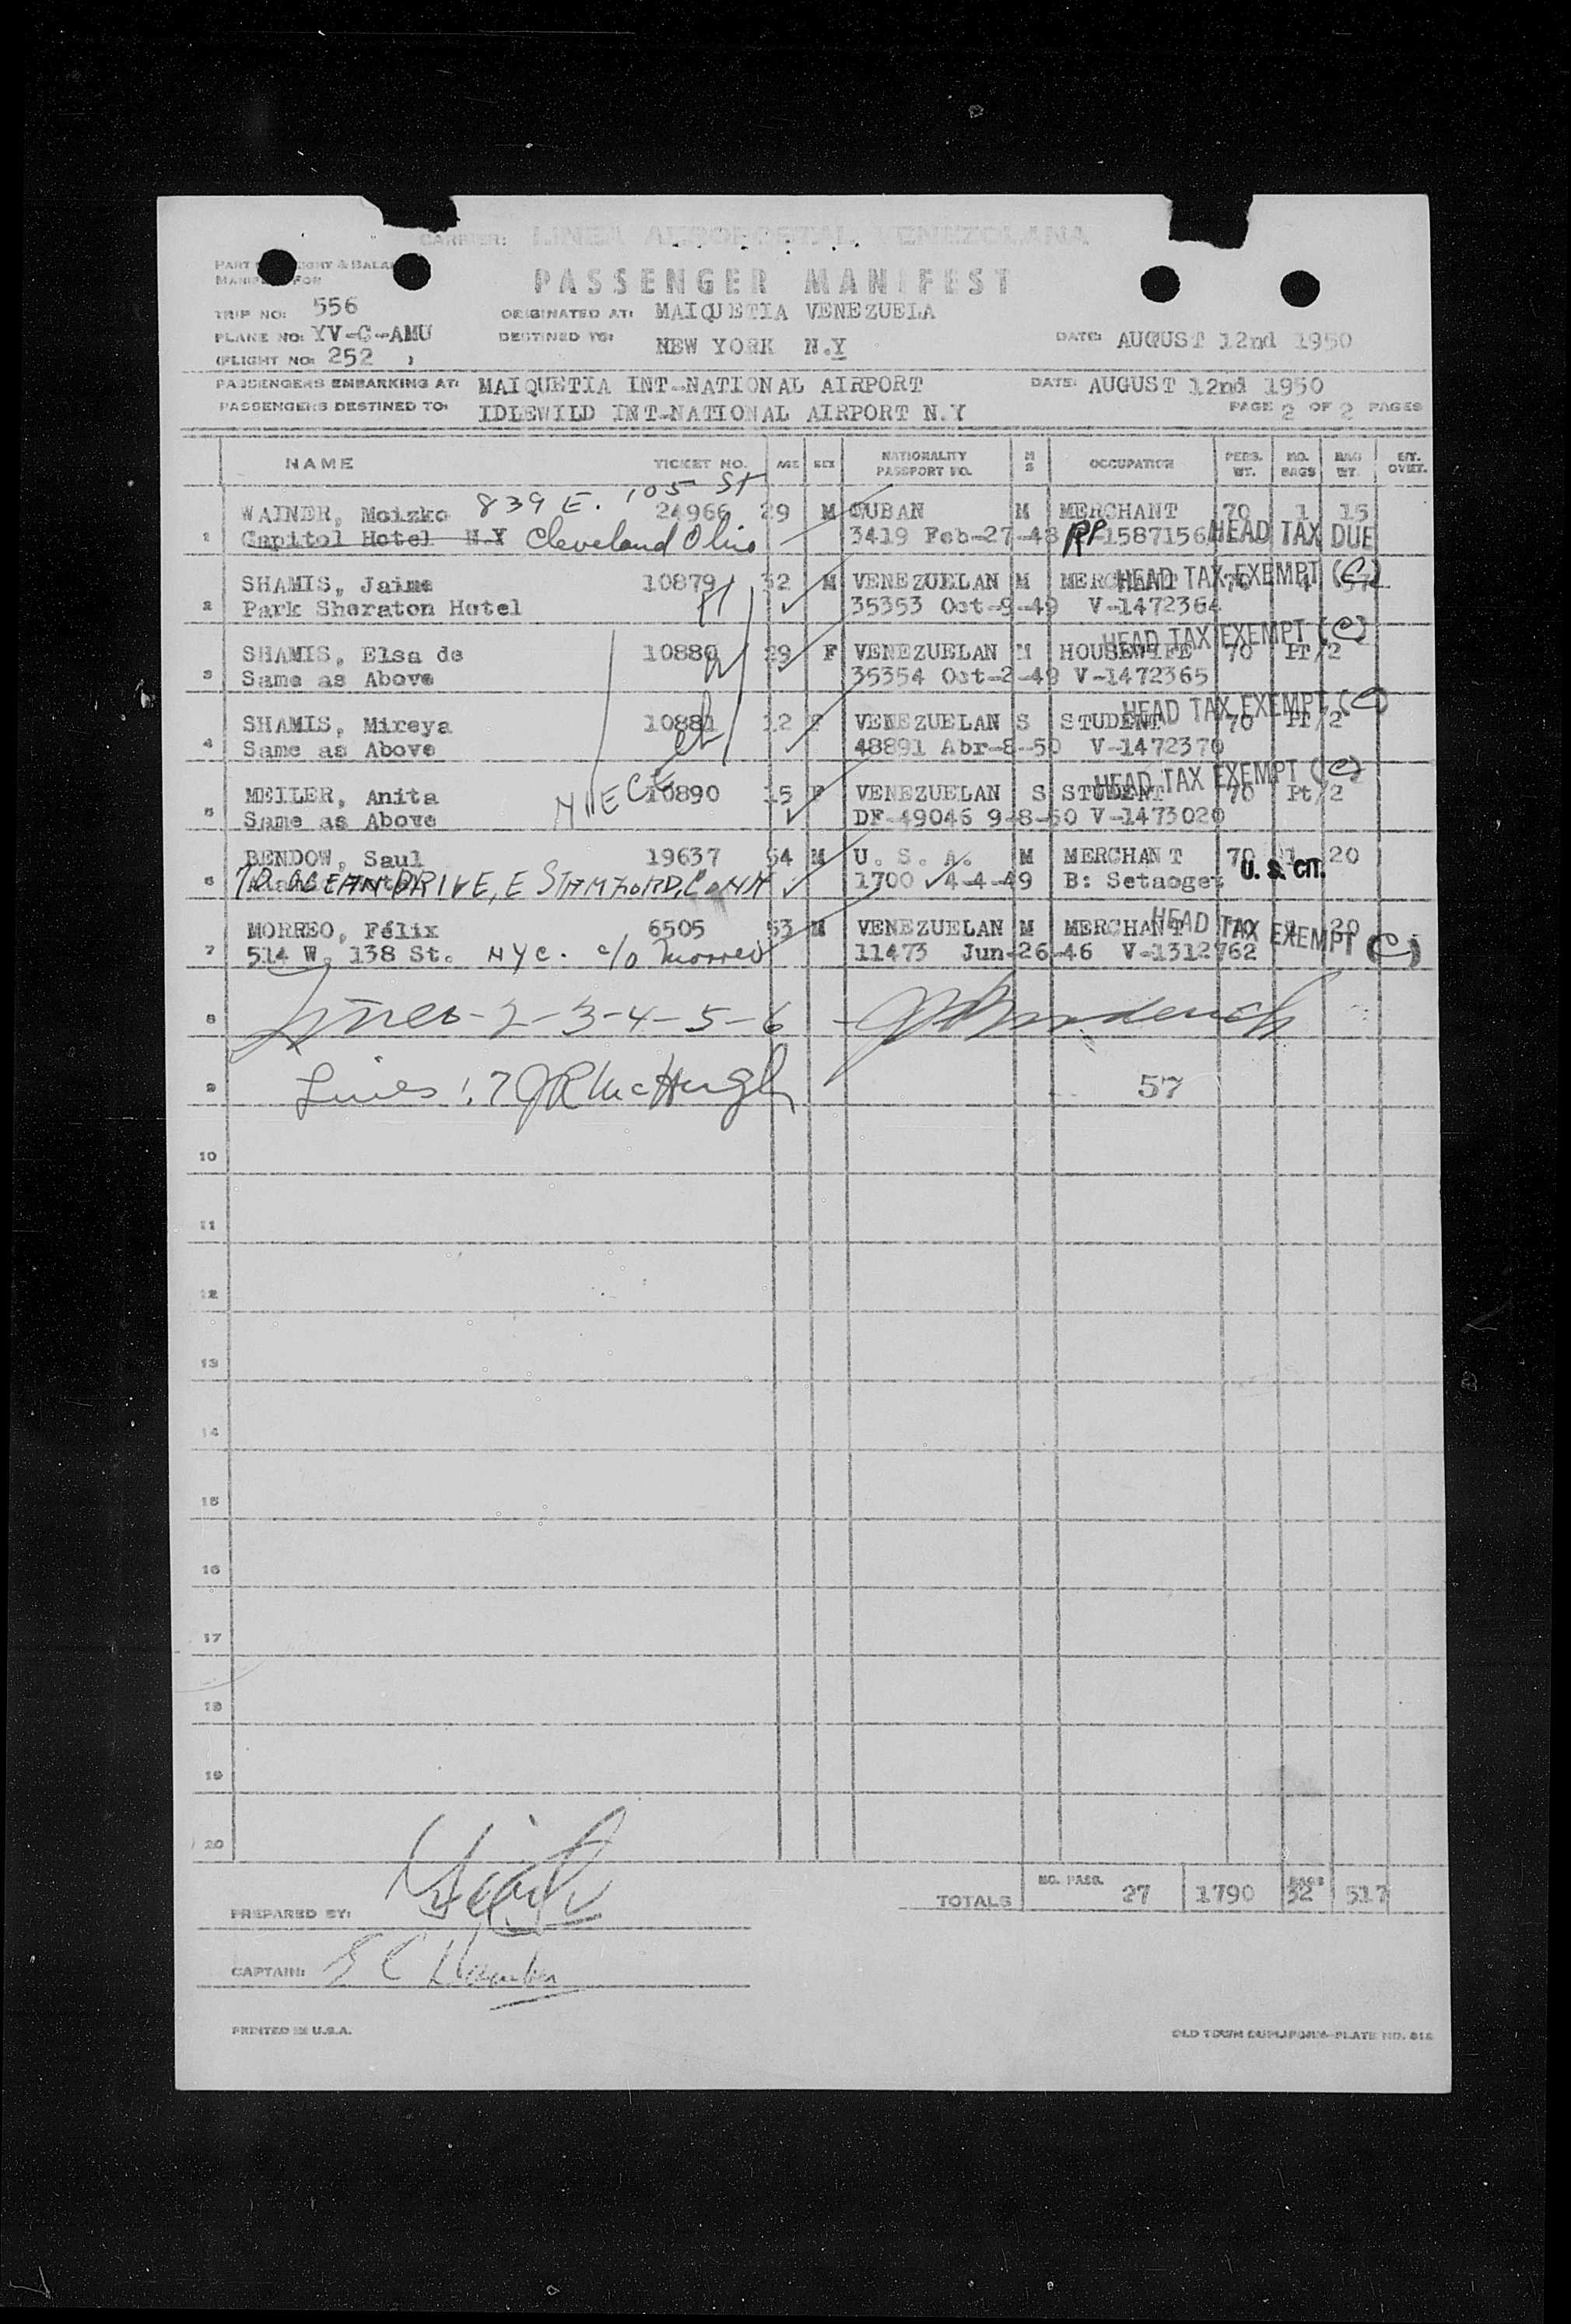 CARRIER: LINEA AEROPOSTAL VENEZOLANA
PASSENGER MANIFEST
TRIP NO: 556
ORIGINATED AT: MAIQUETIA VENEZUELA
PLANE NO: YV-C-AMU
DESTINED TO: NEW YORK N.Y
DATE: AUGUST 12nd 1950
(FLIGHT NO: 252 )
PASSENGERS EMBARKING AT: MAIQUETIA INT-NATIONAL AIRPORT
DATE: AUGUST 12nd 1950
PASSENGERS DESTINED TO: IDLEWILD INT-NATIONAL AIRPORT N.Y
PAGE 2 OF 2 PAGES
NAME TICKET NO. AGE SEX NATIONALITY PASSPORT NO. M S OCCUPATION PERS. WT. NO. BAGS BAG WT.
839 E. 105 St
WAINER, Moizko 24966 29 M CUBAN M MERCHANT 70 1 15
1 Capitol Hotel N.Y Cleveland Ohio 3419 Feb-27-48 RP-1587156 HEAD TAX DUE
SHAMIS, Jaime 10879 32 M VENEZUELAN M MERCHANT 70 4 HEAD TAX EXEMPT (C)
2 Park Sheraton Hotel 35353 Oct-9-49 V-1472364
SHAMIS, Elsa de 10880 29 F VENEZUELAN M HOUSEWIFE 70 PT/2 HEAD TAX EXEMPT (C)
3 Same as Above 35354 Oct-2-49 V-1472365
SHAMIS, Mireya 10881 12 F VENEZUELAN S STUDENT 70 PT/2 HEAD TAX EXEMPT (C)
4 Same as Above 48891 Abr-8-50 V-1472370
MEILER, Anita 10890 15 F VENEZUELAN S STUDENT 70 Pt/2 HEAD TAX EXEMPT (C)
5 Same as Above DF-49046 9-8-50 V-1473020
BENDOW, Saul 19637 54 M U. S. A. M MERCHANT 70 1 20
6 OCEAN DRIVE, E STAMFORD, CONN 1700 4-4-49 B: U. S. CIT.
MORREO, Félix 6505 53 M VENEZUELAN M MERCHANT 20 HEAD TAX EXEMPT (C)
7 514 W. 138 St. NYC. c/o Morreo 11473 Jun-26-46 V-1312762
8 Lines-2-3-4-5-6
9 Lines 1.7 JR McHugh 57
10
11
12
13
14
15
16
17
18
19
20
TOTALS NO. PASS. 27 1790 BAGS 32 517
PREPARED BY:
CAPTAIN:
PRINTED IN U.S.A.
OLD TOWN DUPLIFORM-PLATE NO.